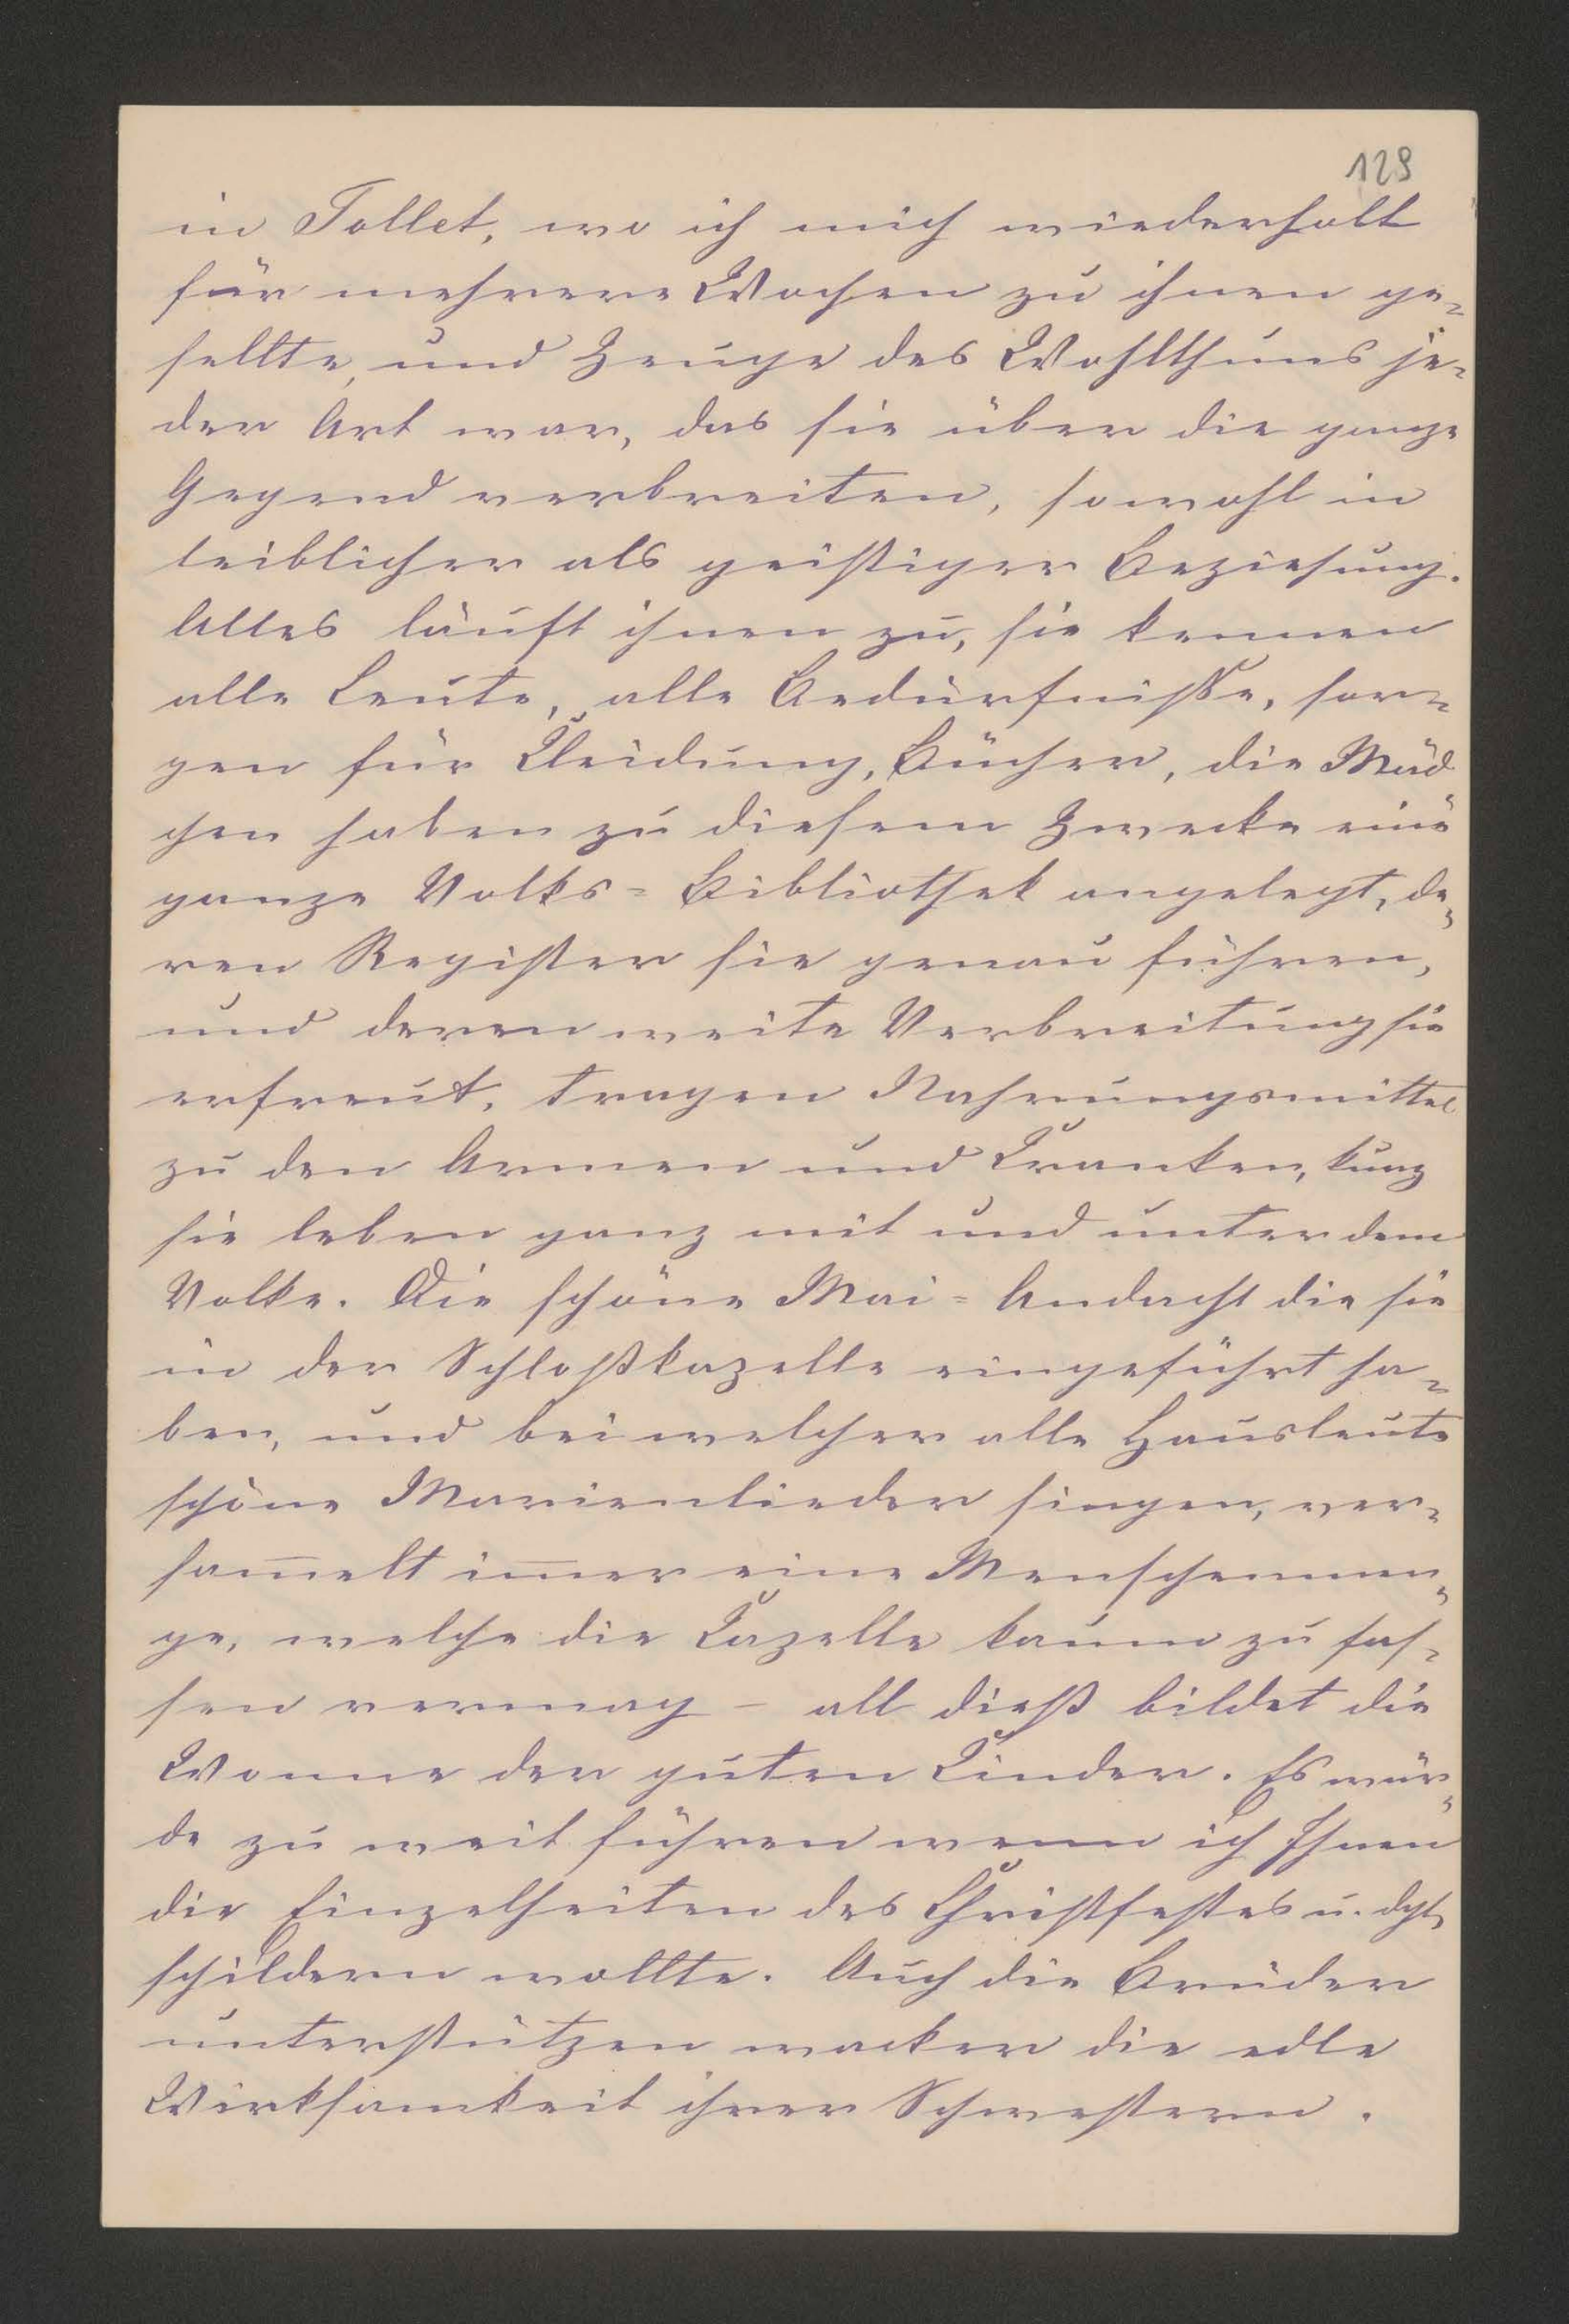 129
in Tollet, wo ich mich wiederholt
für mehrere Wochen zu ihnen ge-
sellte, und Zeuge des Wohlthuns je-
der Art war, das sie über die ganze
Gegend verbreiten, sowohl in
leiblicher als geistiger Beziehung.
Alles läuft ihnen zu, sie kennen
alle Leute, alle Bedürfnisse, sor-
gen für Kleidung, Bücher, die Mäd
chen haben zu diesem Zwecke eine
ganze Volks-Bibliothek angelegt, de-
ren Register sie genau führen,
und deren weite Verbreitung sie
erfreut, tragen Nahrungsmittel
zu den Armen und Kranken, kurz
sie leben ganz mit und unter dem
Volke. Die schöne Mai-Andacht die sie
in der Schloßkapelle eingeführt ha-
ben, und bei welcher alle Hausleute
schöne Marienlieder singen, ver-
sam̅elt im̅er eine Menschenmen-
ge, welche die Kapelle kaum zu fas-
sen vermag – all dieß bildet die
Wonne der guten Kinder. Es wür-
de zu weit führen wenn ich Ihnen
die Einzelheiten des Christfestes u. dgl.
schildern wollte. Auch die Brüder
unterstützen wacker die edle
Wirksamkeit ihrer Schwestern.